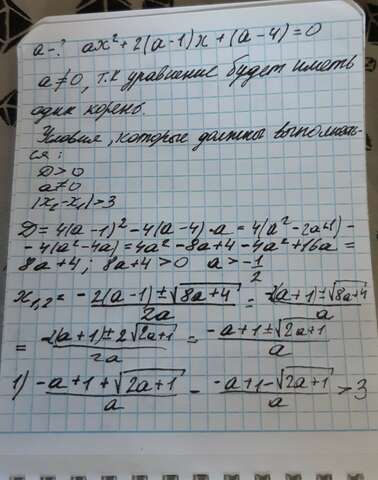 a-? ax² + 2(a-1)x + (a-4) = 0
a≠0, т.к уравнение будет иметь
один корень.
Условия, которые должны выполнять-
ся:
D > 0
a≠0
|x₂-x₁|>3
D = 4(a-1)² - 4(a-4)·a = 4(a²-2a+1) -
- 4(a²-4a) = 4a² - 8a + 4 - 4a² + 16a =
8a + 4; 8a+4 > 0 a > -1/2
x₁,₂ = (-2(a-1) ± √(8a+4))/2a = (-2(a+1) ± √(8a+4))/a
= (-2(a+1) ± 2√(2a+1))/2a = (-a+1 ± √(2a+1))/a
1) (-a+1+√(2a+1))/a - (-a+1-√(2a+1))/a > 3